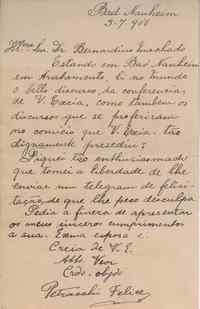 Bad Nauheim
3-7-906
Illmo Snr. Dr. Bernardino Machado
Estando em Bad Nauheim
em tratamento, li no Mundo
o bello discurso da conferencia,
de V. Excia, como tambem os
discursos que se proferiram
no comicio que V. Excia. tão
dignamente presediu;
Fiquei tão enthusiasmado
que tomei a liberdade de lhe
enviar um telegram de felici-
tação, de que lhe peço desculpa
Pedia a fineza de apresentar
os meus sinceros cumprimentos
a sua Exma esposa e
Creia de V. E.
Atto Venr
Crdo obgdo
Petracchi Felice